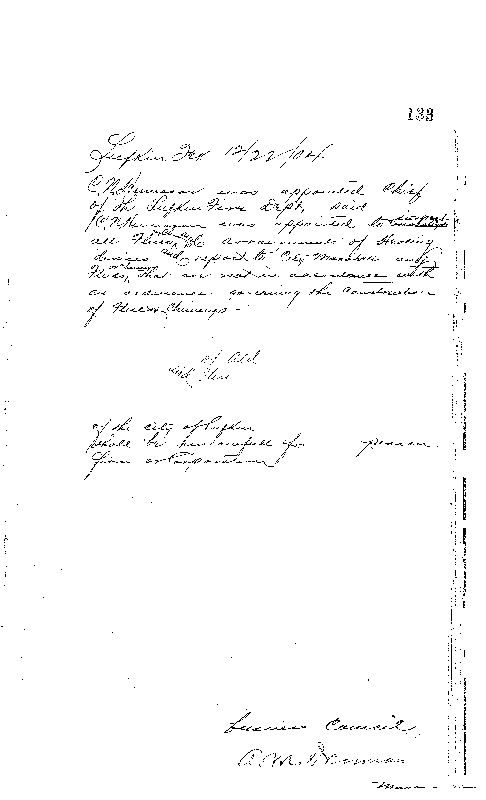 133
Lufkin Tex 12/22/04.
C N Humason was appointed Chief
of the Lufkin Fire Dept, said
C N Humason was appointed to inspect
all Flues, & arrangements of Heating
devices and report to City Marshal any
Flues, that are not in accordance with
an ordinance governing the Construction
of Flues & Chimneys -
of and
and Flue
of the city of Lufkin
shall be unlawful for person
firm or Corporation
business Council,
A. M. Denman